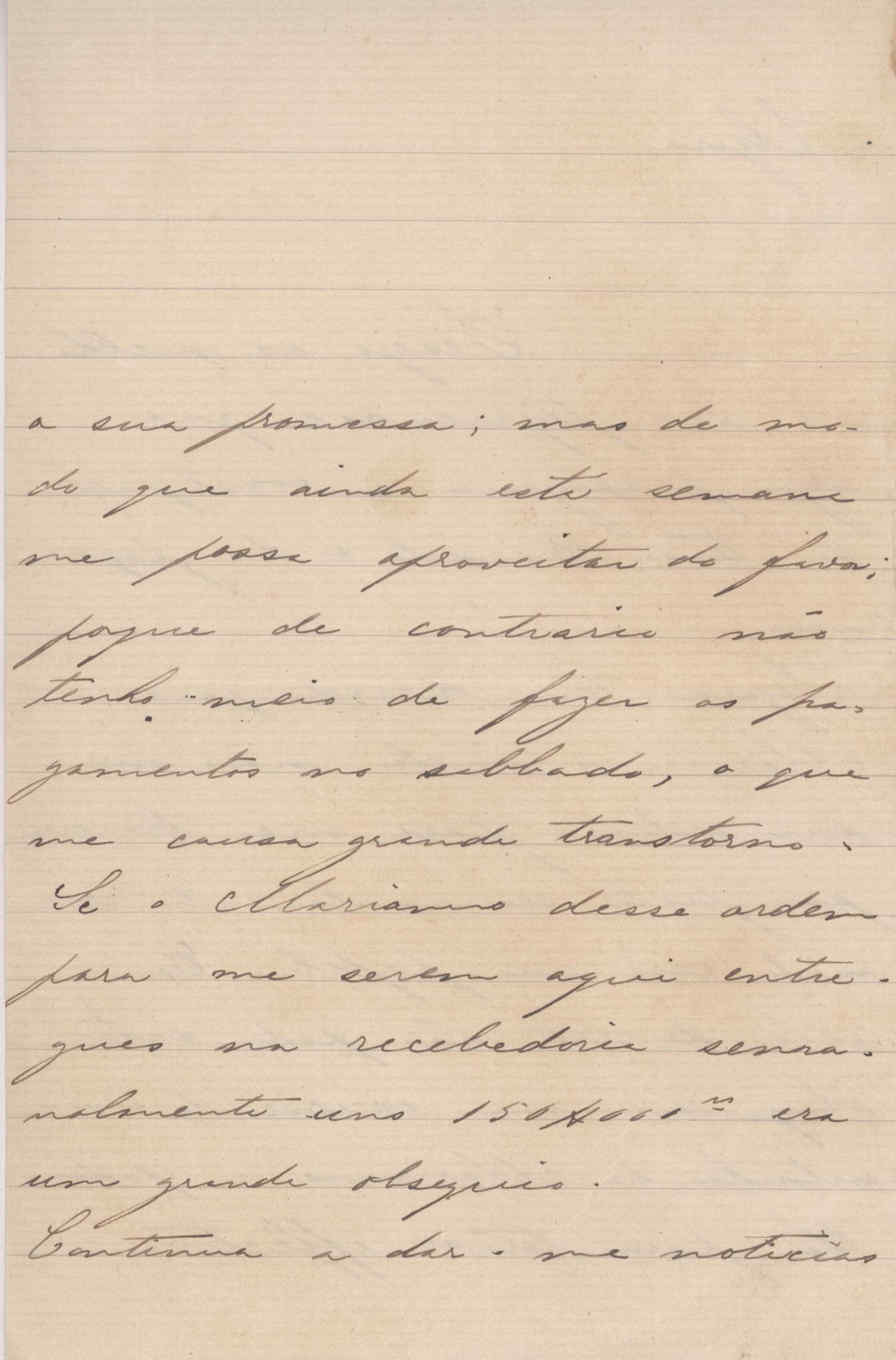 a sua promessa; mas de mo-
do que ainda esta semana
me possa aproveitar do favor;
porque de contrario não
tenho meio de fazer os pa-
gamentos no sabbado, o que
me causa grande transtorno.
Se o Marianno desse ordem
para me serem aqui entre-
gues na recebedoria sema-
nalmente uns 150$000 rs era
um grande obsequio.
Continua a dar-me noticias